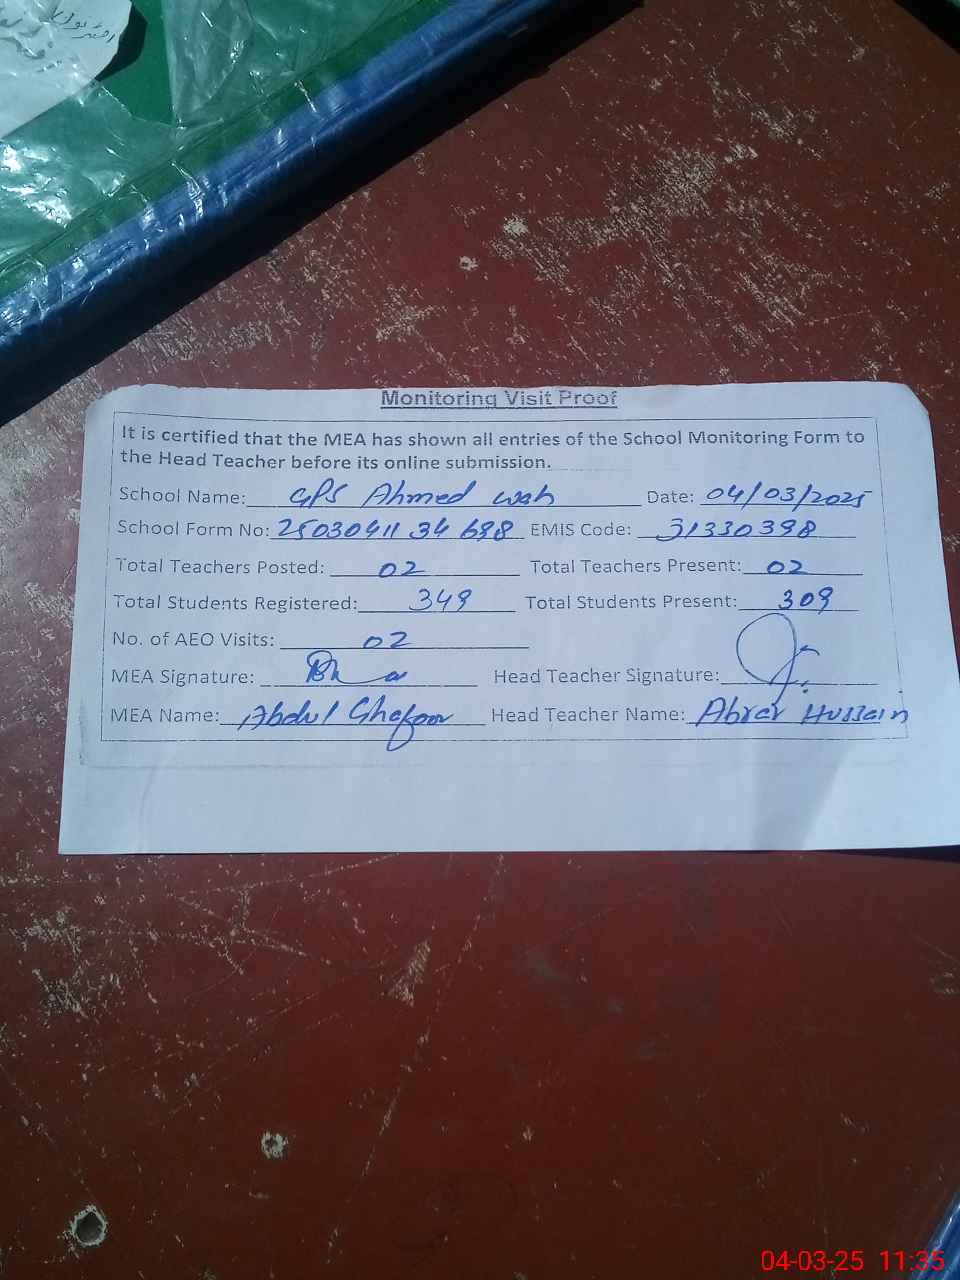 Monitoring Visit Proof
It is certified that the MEA has shown all entries of the School Monitoring Form to
the Head Teacher before its online submission.
School Name: GPS Ahmed wah Date: 04/03/2025
School Form No: 25030411 34 698 EMIS Code: 31330398
Total Teachers Posted: 02 Total Teachers Present: 02
Total Students Registered: 349 Total Students Present: 309
No. of AEO Visits: 02
MEA Signature: Head Teacher Signature:
MEA Name: Abdul Ghafoor Head Teacher Name: Abrar Hussain
04-03-25 11:35